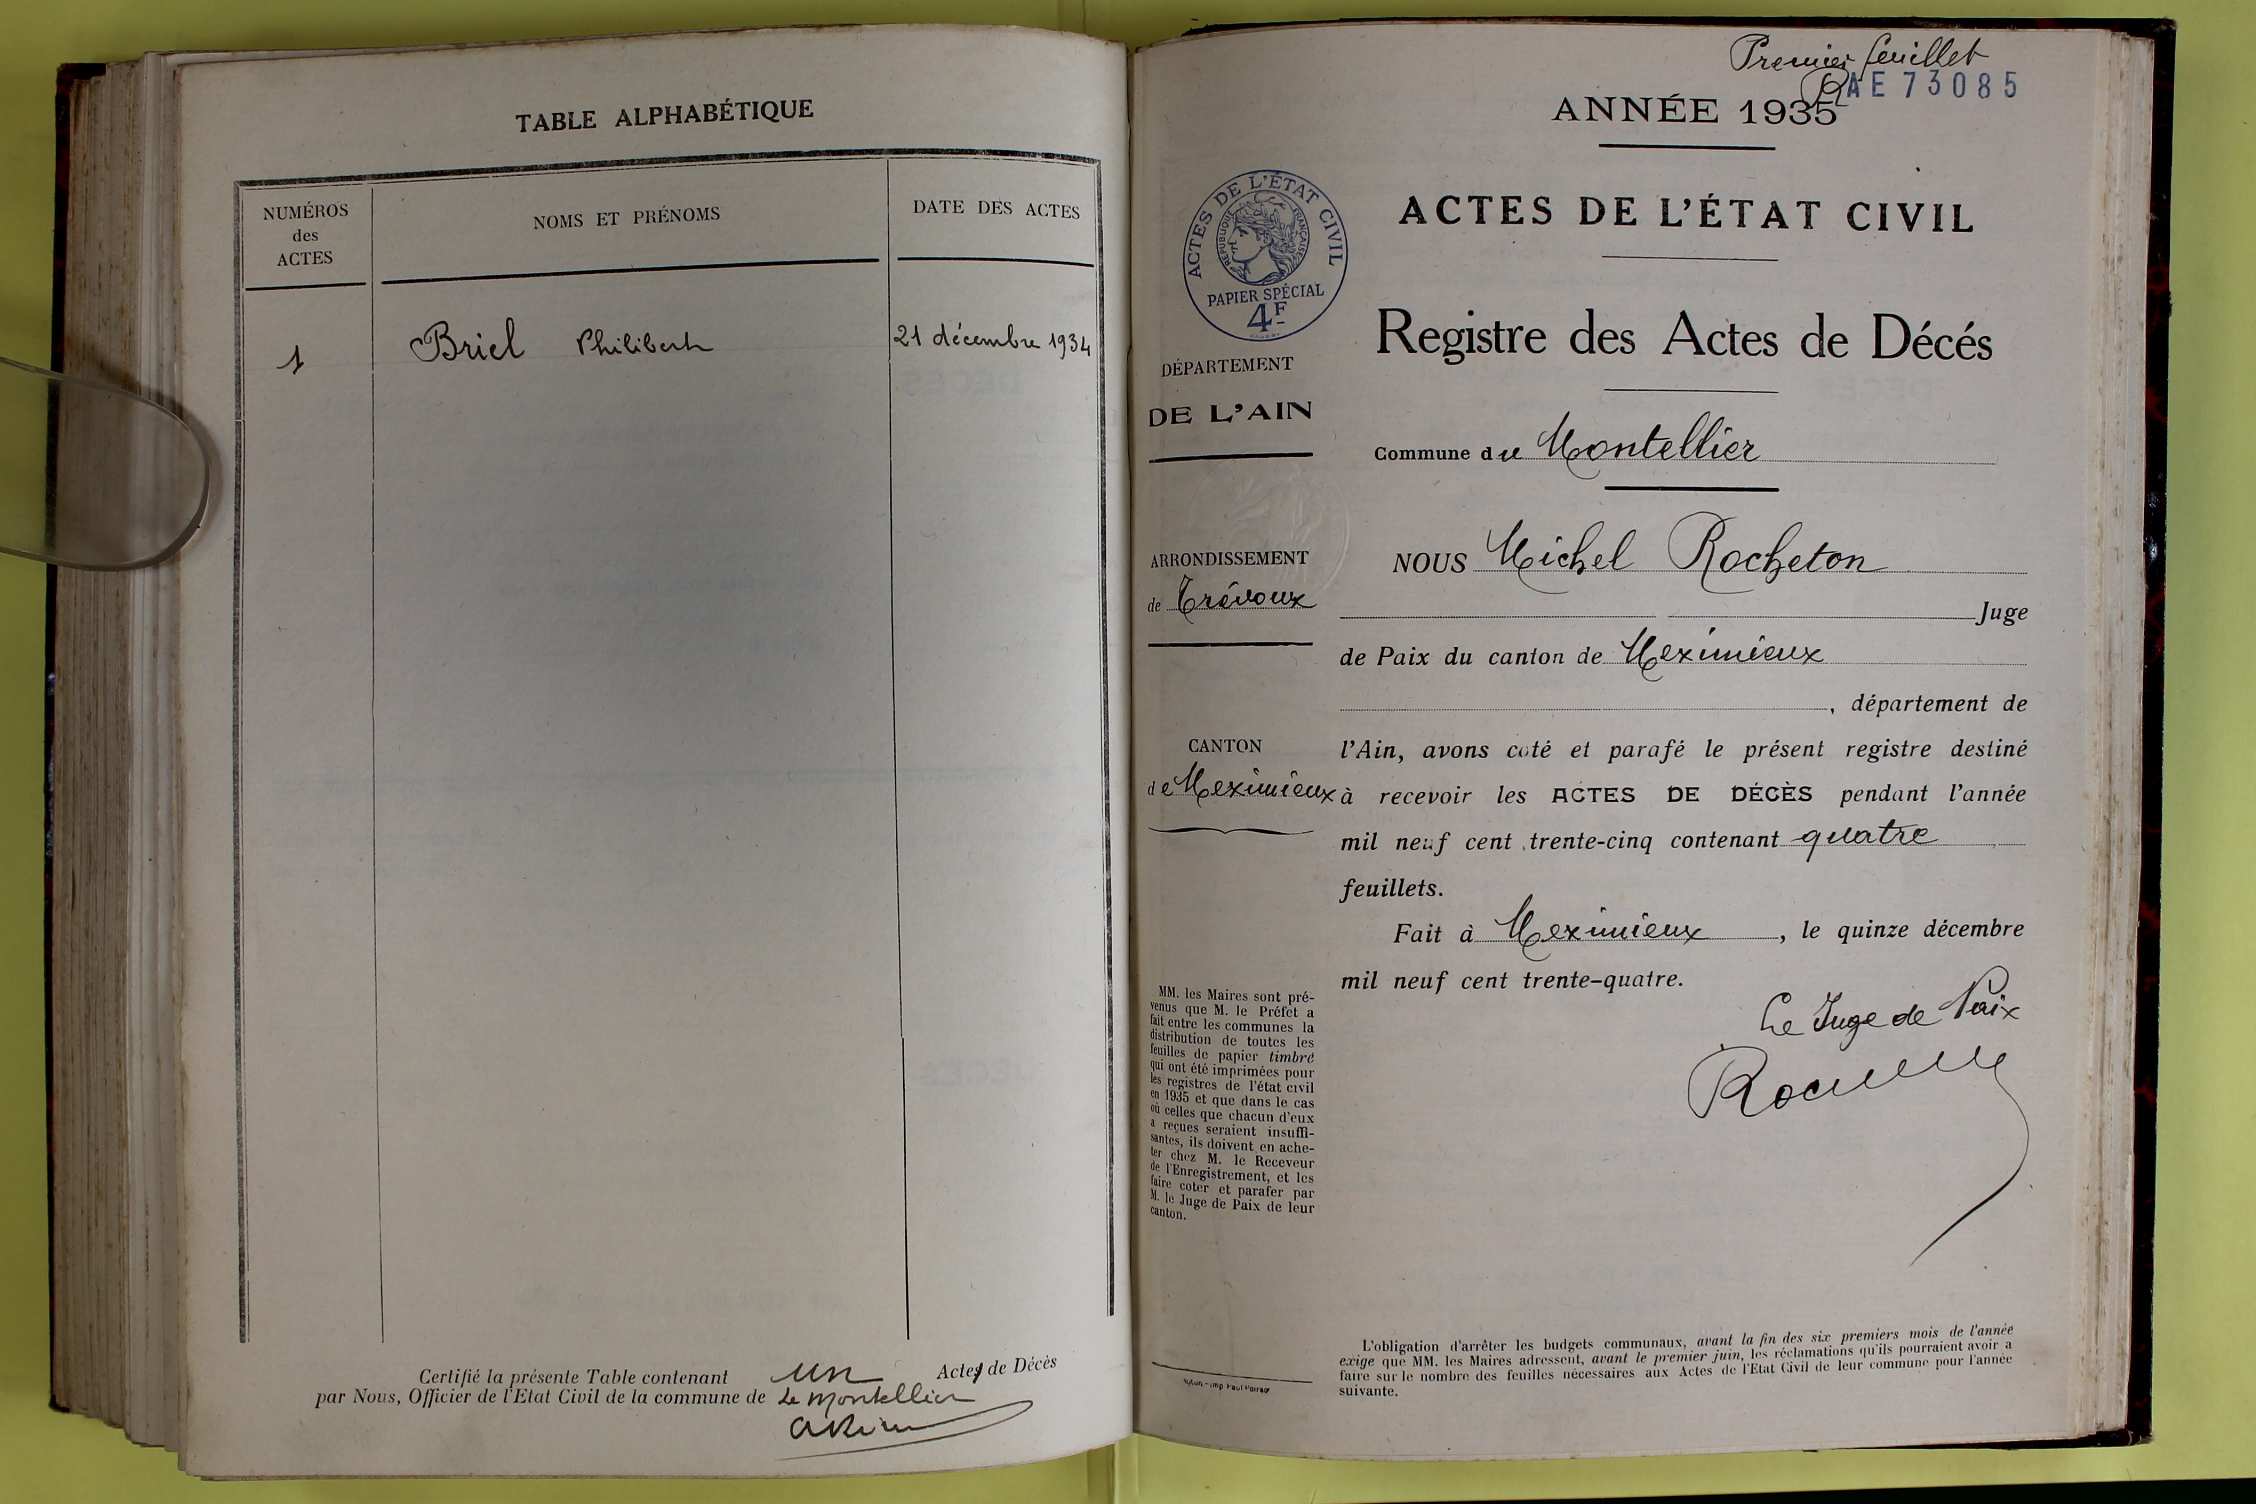 TABLE ALPHABÉTIQUE
NUMÉROS
des
ACTES
NOMS ET PRÉNOMS
DATE DES ACTES
1 Briel Philibert 21 décembre 1934
Certifié la présente Table contenant un Actes de Décès
par Nous, Officier de l'Etat Civil de la commune de Le Montellier
Premier feuillet
AE 73085
ANNÉE 1935
ACTES DE L'ÉTAT CIVIL
RÉPUBLIQUE FRANÇAISE
PAPIER SPÉCIAL
4F
ACTES DE L'ÉTAT CIVIL
Registre des Actes de Décés
DÉPARTEMENT
DE L'AIN
Commune du Montellier
ARRONDISSEMENT
de Trévoux
CANTON
de Meximieux
NOUS Michel Rocheton
Juge
de Paix du canton de Meximieux
, département de
l'Ain, avons coté et parafé le présent registre destiné
à recevoir les ACTES DE DÉCÈS pendant l'année
mil neuf cent trente-cinq contenant quatre
feuillets.
Fait à Meximieux, le quinze décembre
mil neuf cent trente-quatre.
Le Juge de Paix
MM. les Maires sont pré-
venus que M. le Préfet a
fait entre les communes la
distribution de toutes les
feuilles de papier timbré
qui ont été imprimées pour
les registres de l'état civil
en 1935 et que dans le cas
où celles que chacun d'eux
a reçues seraient insuffi-
santes, ils doivent en ache-
ter chez M. le Receveur
de l'Enregistrement, et les
faire coter et parafer par
M. le Juge de Paix de leur
canton.
L'obligation d'arrêter les budgets communaux, avant la fin des six premiers mois de l'année
exige que MM. les Maires adressent, avant le premier juin, les réclamations qu'ils pourraient avoir a
faire sur le nombre des feuilles nécessaires aux Actes de l'Etat Civil de leur commune pour l'année
suivante.